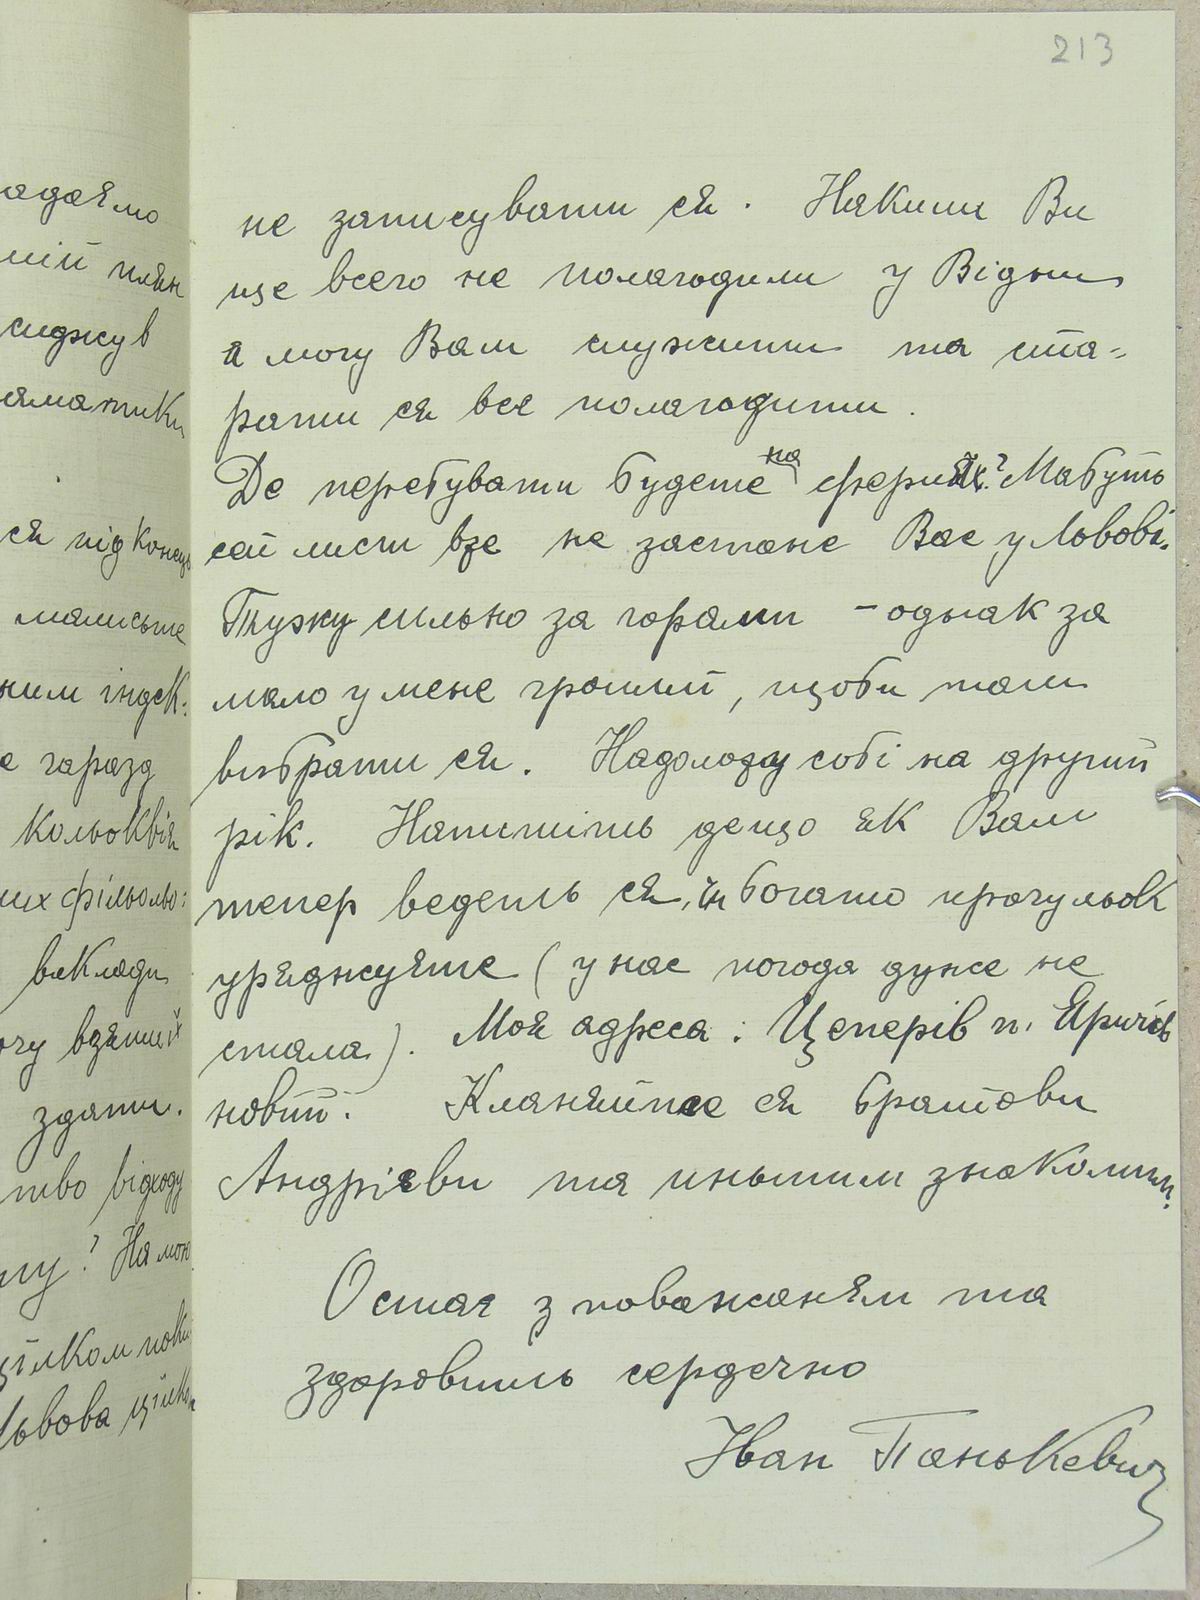 213
не записувати ся. Наколи Ви
ще всего не полагодили у Відни
я могу Вам служити та ста-
рати ся все полагодити.
Де перебувати будете на ферияк? Мабуть
сей лист вже не застане Вас у Львові.
Тужу сильно за горами – однак за
мало у мене грошей, щоби там
вибрати ся. Надоложу собі на другий
рік. Напишіть дещо як Вам
тепер ведеть ся, чи богато прогульок
уряджуєте (у нас погода дуже не
стала). Моя адреса: Цеперів п. Яричів
новий. Кланяйтесе ся братови
Андрієви та иньшим знакомим.
Остаю з поважанєм та
здоровлть сердечно
Іван Панькевич
адаємо
мій плян
сиджу в
ся під конець
малисьте
ним індек-
е гаразд
кольоквія
их фільольо-
виклади
здати.
тво відходу
му? На мою
цілком поки
Львова цілком